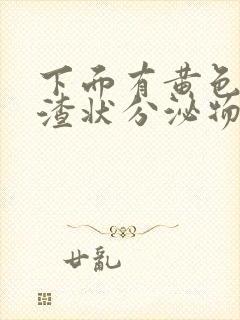 下面有黄色
渣状分泌物
廿乱